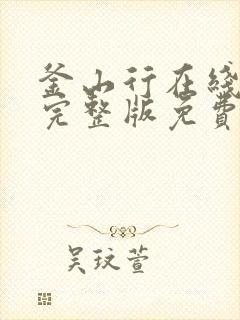 釜山行在线
完整版免费
吴玟萱